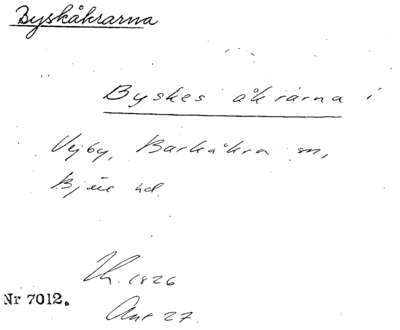 Byskåkrarna
Byskes åkrarna i
Vejby, Barkåkra sn,
Bjäre hd.
1826
Nr 7012.
27.